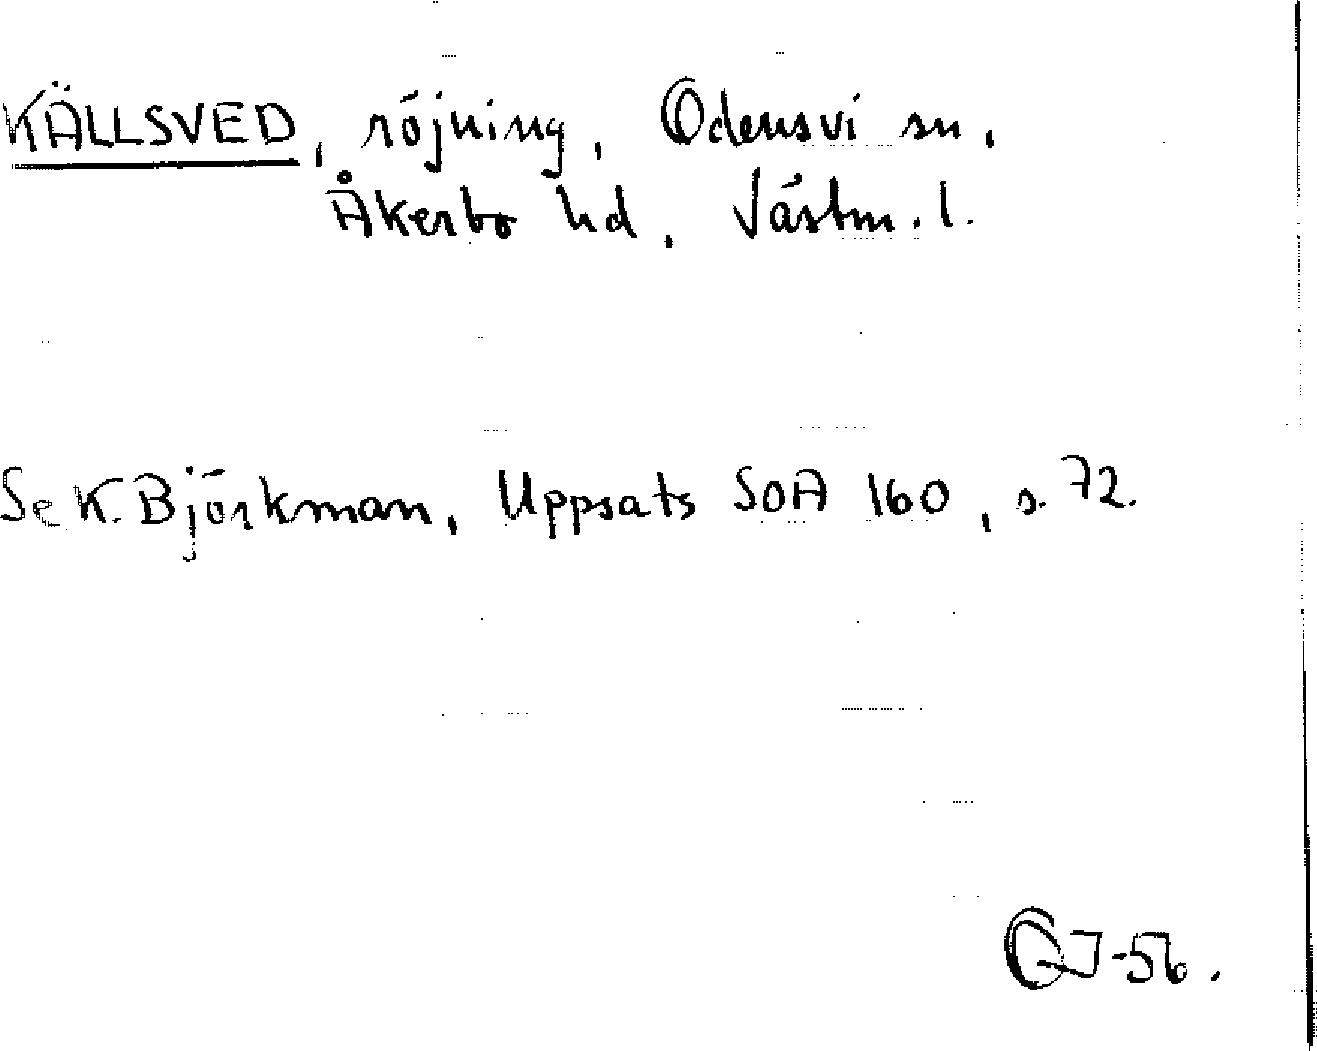 KÄLLSVED, röjning, Odensvi sn,
Åkerbo hd, Västm. l.
Se K. Björkman, Uppsats SOA 160, s. 72.
GJ-56.